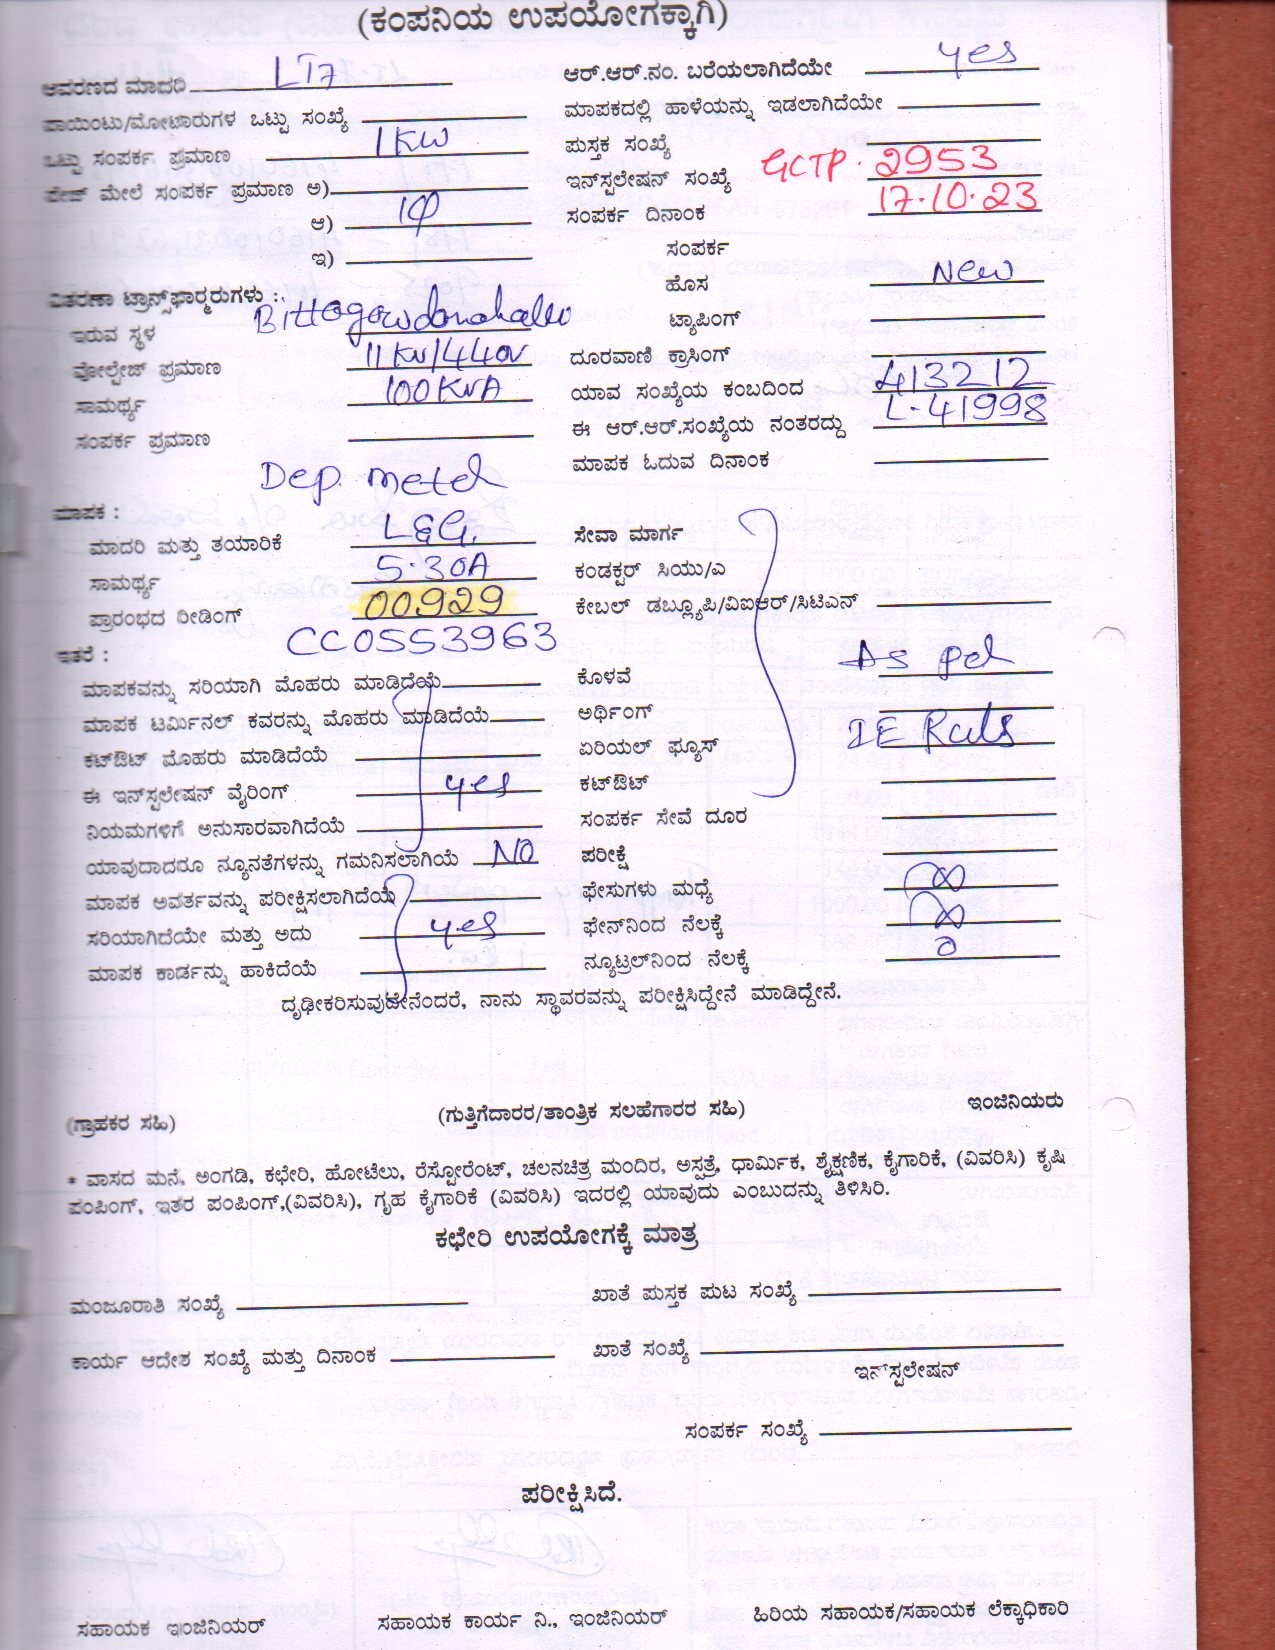 (ಕಂಪನಿಯ ಉಪಯೋಗಕ್ಕಾಗಿ)
ಆವರಣದ ಮಾದರಿ LT7
ಪಾಯಿಂಟು/ಮೋಟಾರುಗಳ ಒಟ್ಟು ಸಂಖ್ಯೆ
ಒಟ್ಟು ಸಂಪರ್ಕ ಪ್ರಮಾಣ 1KW
ಪೇಜ್ ಮೇಲೆ ಸಂಪರ್ಕ ಪ್ರಮಾಣ ಅ)
ಆ) 1Φ
ಇ)
ವಿತರಣಾ ಟ್ರಾನ್ಸ್‌ಫಾರ್ಮರುಗಳು :.
ಇರುವ ಸ್ಥಳ Bittagowdanahalli
ವೋಲ್ಟೇಜ್ ಪ್ರಮಾಣ 11KV/440V
ಸಾಮರ್ಥ್ಯ 100KVA
ಸಂಪರ್ಕ ಪ್ರಮಾಣ
ಆರ್.ಆರ್.ನಂ. ಬರೆಯಲಾಗಿದೆಯೇ yes
ಮಾಪಕದಲ್ಲಿ ಹಾಳೆಯನ್ನು ಇಡಲಾಗಿದೆಯೇ
ಪುಸ್ತಕ ಸಂಖ್ಯೆ
ಇನ್‌ಸ್ಟಲೇಷನ್ ಸಂಖ್ಯೆ GCTP. 2953
ಸಂಪರ್ಕ ದಿನಾಂಕ 17.10.23
ಸಂಪರ್ಕ
ಹೊಸ New
ಟ್ಯಾಪಿಂಗ್
ದೂರವಾಣಿ ಕ್ರಾಸಿಂಗ್
ಯಾವ ಸಂಖ್ಯೆಯ ಕಂಬದಿಂದ 413212
ಈ ಆರ್.ಆರ್.ಸಂಖ್ಯೆಯ ನಂತರದ್ದು L-41998
ಮಾಪಕ ಓದುವ ದಿನಾಂಕ
Dep. meter
ಮಾಪಕ :
ಮಾದರಿ ಮತ್ತು ತಯಾರಿಕೆ L&G.
ಸಾಮರ್ಥ್ಯ 5-30A
ಪ್ರಾರಂಭದ ರೀಡಿಂಗ್ 00929
CC0553963
ಇತರೆ :
ಮಾಪಕವನ್ನು ಸರಿಯಾಗಿ ಮೊಹರು ಮಾಡಿದೆಯೆ
ಮಾಪಕ ಟರ್ಮಿನಲ್ ಕವರನ್ನು ಮೊಹರು ಮಾಡಿದೆಯೆ
ಕಟ್‌ಔಟ್ ಮೊಹರು ಮಾಡಿದೆಯೆ
ಈ ಇನ್‌ಸ್ಟಲೇಷನ್ ವೈರಿಂಗ್ yes
ನಿಯಮಗಳಿಗೆ ಅನುಸಾರವಾಗಿದೆಯೆ
ಯಾವುದಾದರೂ ನ್ಯೂನತೆಗಳನ್ನು ಗಮನಿಸಲಾಗಿಯೆ NO
ಮಾಪಕ ಅವರ್ತವನ್ನು ಪರೀಕ್ಷಿಸಲಾಗಿದೆಯೆ
ಸರಿಯಾಗಿದೆಯೇ ಮತ್ತು ಅದು yes
ಮಾಪಕ ಕಾರ್ಡನ್ನು ಹಾಕಿದೆಯೆ
ಸೇವಾ ಮಾರ್ಗ
ಕಂಡಕ್ಟರ್ ಸಿಯು/ಎ
ಕೇಬಲ್ ಡಬ್ಲ್ಯೂಪಿ/ವಿಐಆರ್/ಸಿಟಿಎನ್
ಕೊಳವೆ As per
ಅರ್ಥಿಂಗ್
ಏರಿಯಲ್ ಫ್ಯೂಸ್ IE Rules
ಕಟ್‌ಔಟ್
ಸಂಪರ್ಕ ಸೇವೆ ದೂರ
ಪರೀಕ್ಷೆ
ಫೇಸುಗಳು ಮಧ್ಯೆ ∞
ಫೇಸ್‌ನಿಂದ ನೆಲಕ್ಕೆ ∞
ನ್ಯೂಟ್ರಲ್‌ನಿಂದ ನೆಲಕ್ಕೆ 0
ದೃಢೀಕರಿಸುವುದೇನೆಂದರೆ, ನಾನು ಸ್ಥಾವರವನ್ನು ಪರೀಕ್ಷಿಸಿದ್ದೇನೆ ಮಾಡಿದ್ದೇನೆ.
(ಗ್ರಾಹಕರ ಸಹಿ) (ಗುತ್ತಿಗೆದಾರರ/ತಾಂತ್ರಿಕ ಸಲಹೆಗಾರರ ಸಹಿ) ಇಂಜಿನಿಯರು
* ವಾಸದ ಮನೆ, ಅಂಗಡಿ, ಕಛೇರಿ, ಹೋಟೆಲು, ರೆಸ್ಟೋರೆಂಟ್, ಚಲನಚಿತ್ರ ಮಂದಿರ, ಅಸ್ಪತ್ರೆ, ಧಾರ್ಮಿಕ, ಶೈಕ್ಷಣಿಕ, ಕೈಗಾರಿಕೆ, (ವಿವರಿಸಿ) ಕೃಷಿ
ಪಂಪಿಂಗ್, ಇತರ ಪಂಪಿಂಗ್,(ವಿವರಿಸಿ), ಗೃಹ ಕೈಗಾರಿಕೆ (ವಿವರಿಸಿ) ಇದರಲ್ಲಿ ಯಾವುದು ಎಂಬುದನ್ನು ತಿಳಿಸಿರಿ.
ಕಛೇರಿ ಉಪಯೋಗಕ್ಕೆ ಮಾತ್ರ
ಮಂಜೂರಾತಿ ಸಂಖ್ಯೆ ಖಾತೆ ಪುಸ್ತಕ ಪುಟ ಸಂಖ್ಯೆ
ಕಾರ್ಯ ಆದೇಶ ಸಂಖ್ಯೆ ಮತ್ತು ದಿನಾಂಕ ಖಾತೆ ಸಂಖ್ಯೆ
ಇನ್‌ಸ್ಟಲೇಷನ್
ಸಂಪರ್ಕ ಸಂಖ್ಯೆ
ಪರೀಕ್ಷಿಸಿದೆ.
ಸಹಾಯಕ ಇಂಜಿನಿಯರ್ ಸಹಾಯಕ ಕಾರ್ಯ ನಿ., ಇಂಜಿನಿಯರ್ ಹಿರಿಯ ಸಹಾಯಕ/ಸಹಾಯಕ ಲೆಕ್ಕಾಧಿಕಾರಿ